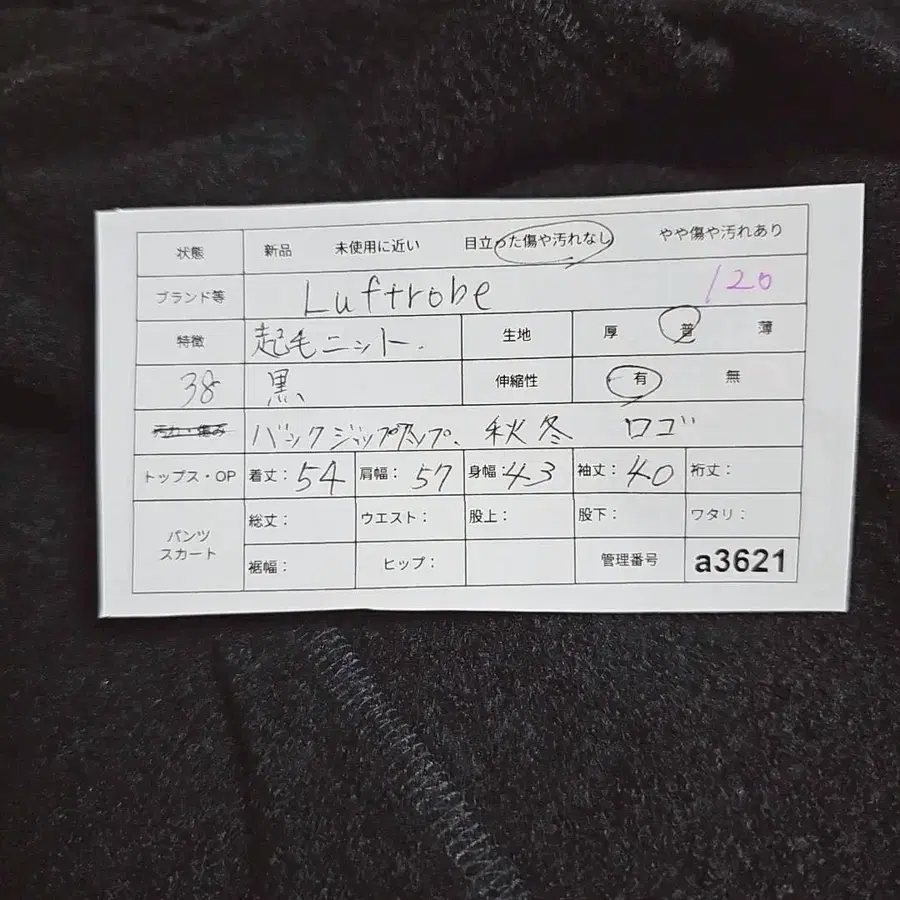 状態 新品 未使用に近い 目立った傷や汚れなし やや傷や汚れあり
ブランド等 Luftrobe 120
特徴 起毛ニット. 生地 厚 普 薄
38 黒 伸縮性 有 無
汚れ・傷み バックジップアップ、秋冬 ロゴ
トップス・OP 着丈：54 肩幅：57 身幅：43 袖丈：40 裄丈：
パンツ スカート 総丈： ウエスト： 股上： 股下： ワタリ：
裾幅： ヒップ： 管理番号 a3621